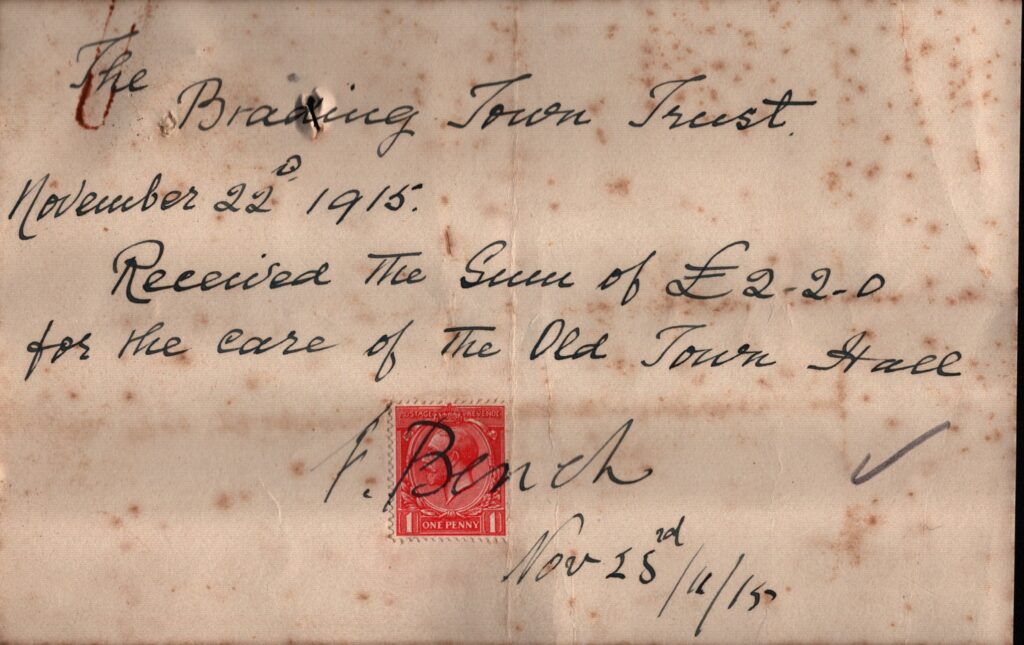 The
Brading Town Trust.
November 22D 1915.
Received the Sum of £2-2-0
for the care of the Old Town Hall
POSTAGE REVENUE
F. Bench
1 ONE PENNY 1
Nov 23rd/11/15